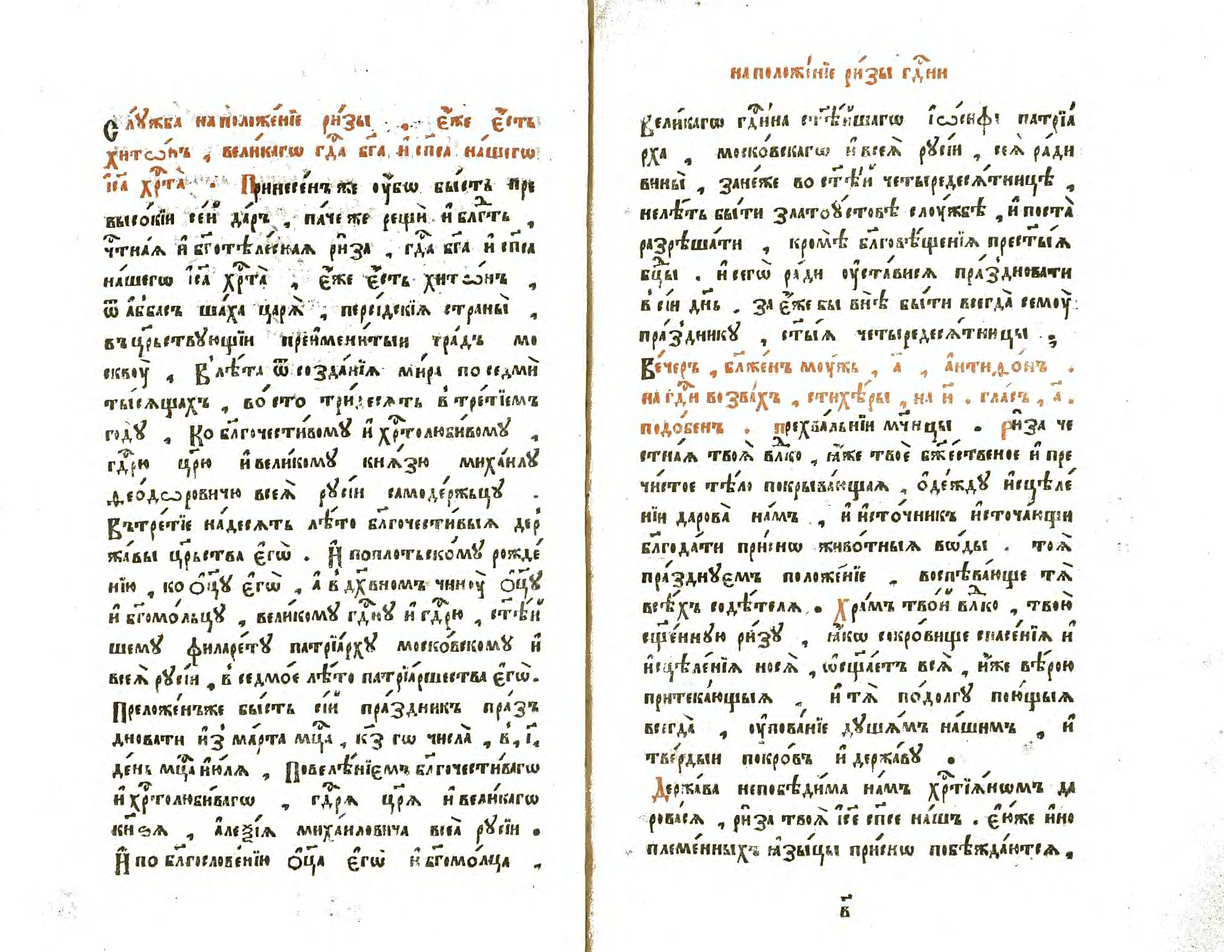 Слꙋ́жба на положе́нїе ри́зы . є҆́же є҆́сть
хито́нъ , вели́кагѡ гдⷭ҇а бг҃а и҆ сп҃са на́шегѡ
і҆с҃а хрⷭ҇та̀ . Принесе́нъ же ᲂу҆́бѡ бы́сть пре
высо́кїи се́й да́ръ , па́че же рещѝ и҆ блгⷣть ,
чⷭ҇тна́ѧ и҆ бг҃отѣле́снаѧ ри́за , гдⷭ҇а бг҃а и҆ сп҃са
на́шегѡ і҆с҃а хрⷭ҇та̀ , є҆́же є҆́сть хито́нъ ,
ѿ а҆ббасъ ша́ха царѧ̀ , персі́дскїѧ страны̀ ,
въ црⷭ҇твꙋющїи преименитыи градъ мо
сквꙋ̀ , В лѣ́та ѿ созда́нїѧ ми́ра по седмѝ
ты́сѧщахъ , во́ сто три́десѧть в тре́тїемъ
годꙋ̀ , Ко бл҃гочести́вомꙋ и҆ хрⷭ҇толюби́вомꙋ ,
гдⷭ҇рю цр҃ю и҆ вели́комꙋ кнѧ́зю михаи́лꙋ
ѳео́дѡровичю всеѧ̀ рꙋсі́и самоде́ржьцꙋ .
Въ тре́тїе на́десѧть лѣ́то бл҃гочести́выѧ дер
жа́вы црⷭ҇тва є҆гѡ̀ . И҆ по плотьско́мꙋ рожде́
нїю , ко ѻ҆ц҃ꙋ̀ є҆гѡ̀ , а҆ в дх҃вномъ чинꙋ̀ ѻ҆ц҃ꙋ̀
и҆ бг҃омо́льцꙋ , вели́комꙋ гдⷭ҇нꙋ и҆ гдⷭ҇рю , ст҃ѣ́й
шемꙋ филаре́тꙋ патрїа́рхꙋ моско́вскомꙋ и҆
всеѧ̀ рꙋсі́и , в седмо́е лѣ́то патрїа́ршества є҆гѡ̀.
Преложе́нъ же бы́сть сі́й пра́здникъ пра́зъ
дновати и҆з̾ ма́рта мцⷭ҇а , к҃з гѡ числа̀ , в , і҃,
де́нь мцⷭ҇а и҆ю́лѧ , Повелѣ́нїемъ бл҃гочести́вагѡ
и҆ хрⷭ҇толюби́вагѡ , гдⷭ҇рѧ цр҃ѧ̀ и҆ вели́кагѡ
кн҃зѧ , а҆леѯі́ѧ миха́иловича всеа̀ рꙋсі́и .
И҆ по бл҃гослове́нїю ѻ҆ц҃а̀ є҆гѡ̀ и҆ бг҃омо́лца ,
на положе́нїе ри́зы гдⷭ҇ни
вели́кагѡ гдⷭ҇и́на ст҃ѣ́йшагѡ і҆ѡ́сифа патрїа́
рха , моско́вскагѡ и҆ всеѧ̀ рꙋсі́и , сеѧ̀ ра́ди
вины̀ , зане́же во ст҃ѣ́й четыредесѧ́тницѣ ,
нелѣ́ть бы́ти златоꙋ́стовѣ слоу́жбѣ , и҆ поста̀
разрѣша́ти , кромѣ̀ бл҃говѣ́щенїѧ прест҃ы́ѧ
бц҃ы . и҆ сегѡ̀ ра́ди ᲂу҆ста́висѧ пра́здновати
в сі́и дн҃ь . за є҆́же бы внѣ̀ бы́ти всегда̀ семꙋ̀
пра́зднику , ст҃ы́ѧ четыредесѧ́тницы ,
Ве́черъ , бл҃же́нъ моу́жь , а҃ , а҆нтифо́нъ .
на гдⷭ҇и возва́хъ , стихѣ́ры , на и҃ . гла́съ , а҃ .
подо́бенъ . прехва́льнїи мч҃нцы . Ри́за че
стна́ѧ твоѧ̀ влⷣко , ꙗ҆́же твоѐ бж҃ественое и҆ пре
чи́стое тѣ́ло покрыва́ющаѧ , ѻ҆де́ждꙋ и҆сцѣле́
нїи дарова̀ на́мъ , и҆ и҆сто́чникъ и҆сточа́ющи
бл҃года́ти при́снѡ живо́тныѧ во́ды . тоѧ̀
пра́зднꙋемъ положе́нїе , воспѣва́юще тѧ̀
всѣ́хъ содѣ́телѧ . Хра́мъ тво́й влⷣко , твою̀
сщ҃е́ннꙋю ри́зꙋ , ꙗ҆́кѡ сокро́вище спасе́нїѧ и҆
и҆сцѣле́нїѧ носѧ̀ , ѡ҆сщ҃а́етъ всѧ̀ , и҆́же вѣ́рою
притека́ющыѧ , и҆ тѧ̀ по́долгꙋ пою́щыѧ
всегда̀ , ᲂу҆пова́нїе дꙋша́мъ на́шимъ , и҆
тве́рдыи покро́въ и҆ держа́вꙋ .
Держа́ва непобѣди́ма на́мъ хрⷭ҇тїѧ́нѡмъ да
рова́сѧ , ри́за твоѧ̀ і҆с҃е сп҃се на́шъ . є҆ю́же и҆но
племе́нныхъ ꙗ҆зы́цы при́снѡ побѣжда́ютсѧ ,
в҃